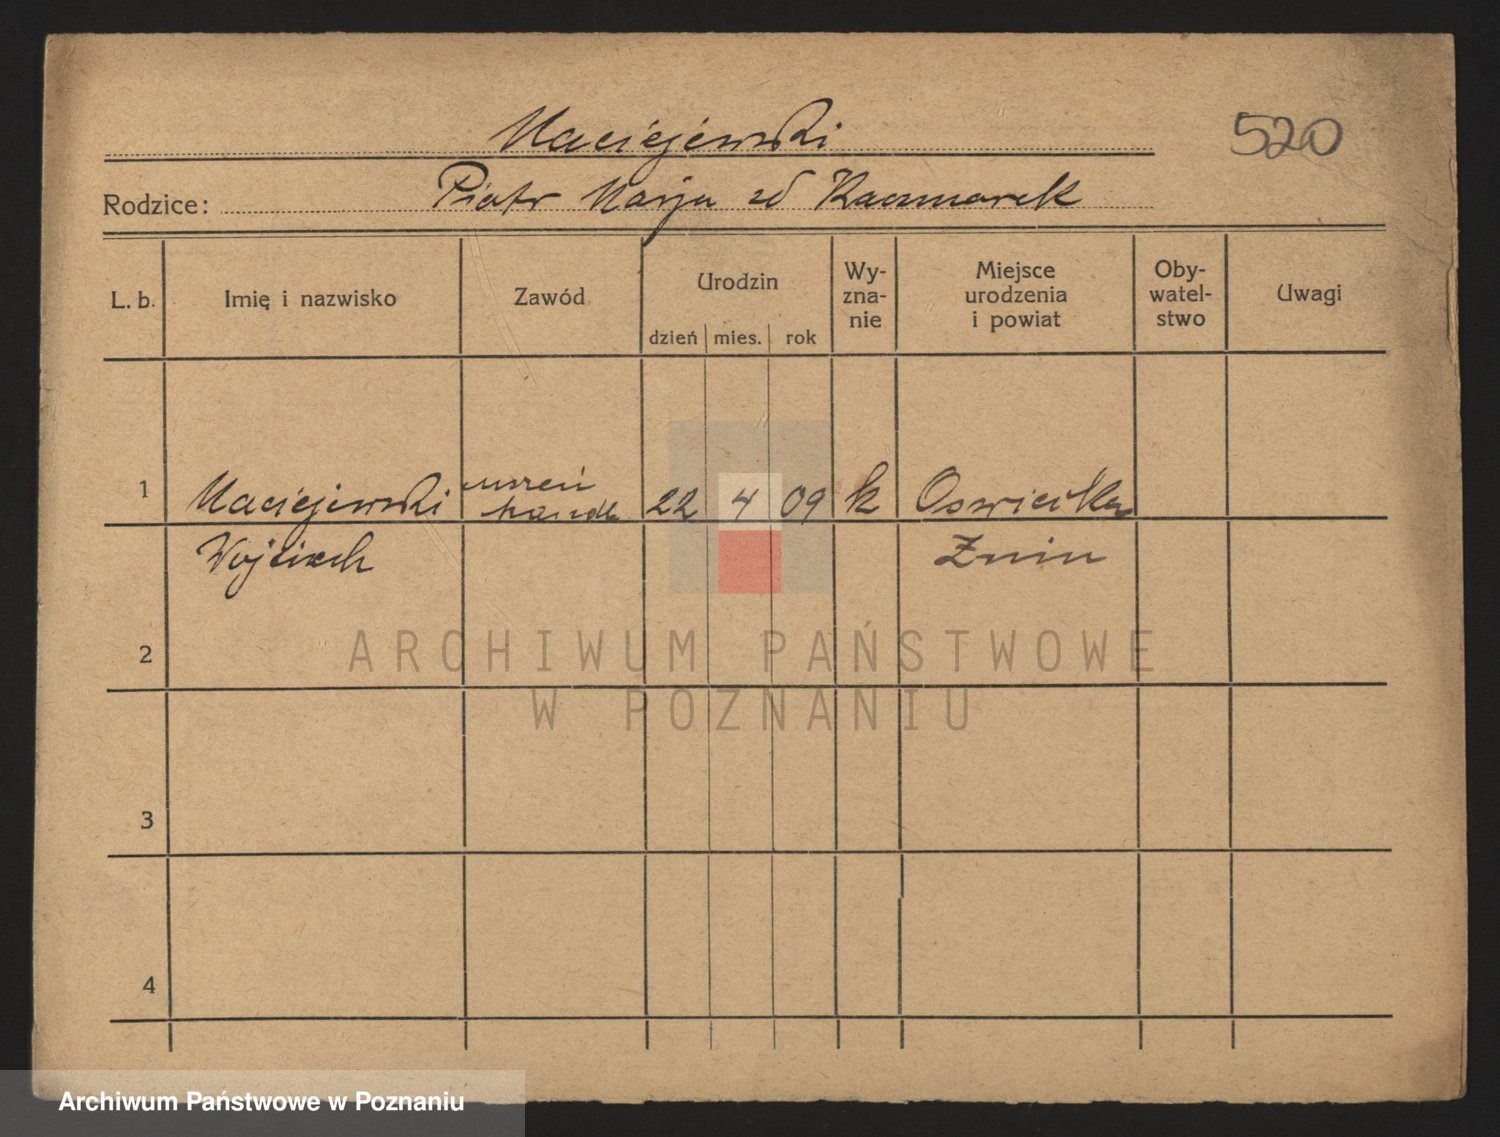 Maciejewski
520
Rodzice: Piotr Marja zd Kaczmarek
L. b.
Imię i nazwisko
Zawód
Urodzin
dzień mies. rok
Wy-
zna-
nie
Miejsce
urodzenia
i powiat
Oby-
watel-
stwo
Uwagi
1
Maciejewski
Wojciech
uczeń
handl
22 4 09
k
Żnin
2
3
4
ARCHIWUM PAŃSTWOWE
W POZNANIU
Archiwum Państwowe w Poznaniu